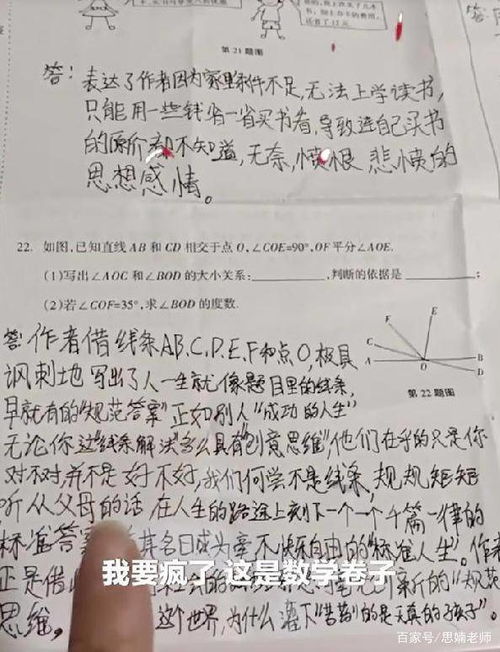 还省了13元.
第 21 题图
答: 表达了作者因为家里条件不足,无法上学读书,
只能用一些钱省一省买书看,导致连自己买书
的原价都不知道,无奈,愤恨 悲愤的
思想感情。
22. 如图,已知直线 AB 和 CD 相交于点 O,∠COE=90°,OF 平分∠AOE.
(1)写出∠AOC 和∠BOD 的大小关系:________,判断的依据是________
(2)若∠COF=35°,求∠BOD 的度数.
F
E
C
A
O
B
D
第 22 题图
答:作者借线条AB、C、D、E、F和点O,极具
讽刺地写出了人一生就像题目里的线条,
早就有的"规范答案"正如别人"成功的人生"
无论你这"线条解法"多么具有"创意思维",他们在乎的只是你
对不对,并不是好不好,我们何尝不是线条,规规矩矩
听从父母的话,在人生的路途上刻下一个一个千篇一律的
标准答案 其名曰成为牵不快乐自由的"标准人生"。作者
正是借 的"规范
思维。 这个世界,为什么落下"苦昔"的是天真的孩子"。
我要疯了 这是数学卷子
百家号/思婻老师